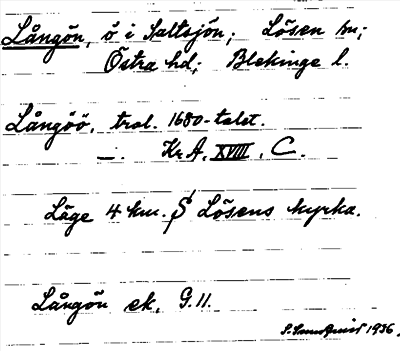 Långön, ö i Saltsjön; Lösen sn;
Östra hd; Blekinge l.
Långöö, trol. 1680-talet.
—. Kr A, XVIII, C.
Läge 4 km. S Lösens kyrka.
Långön ek. G.11.
1936.